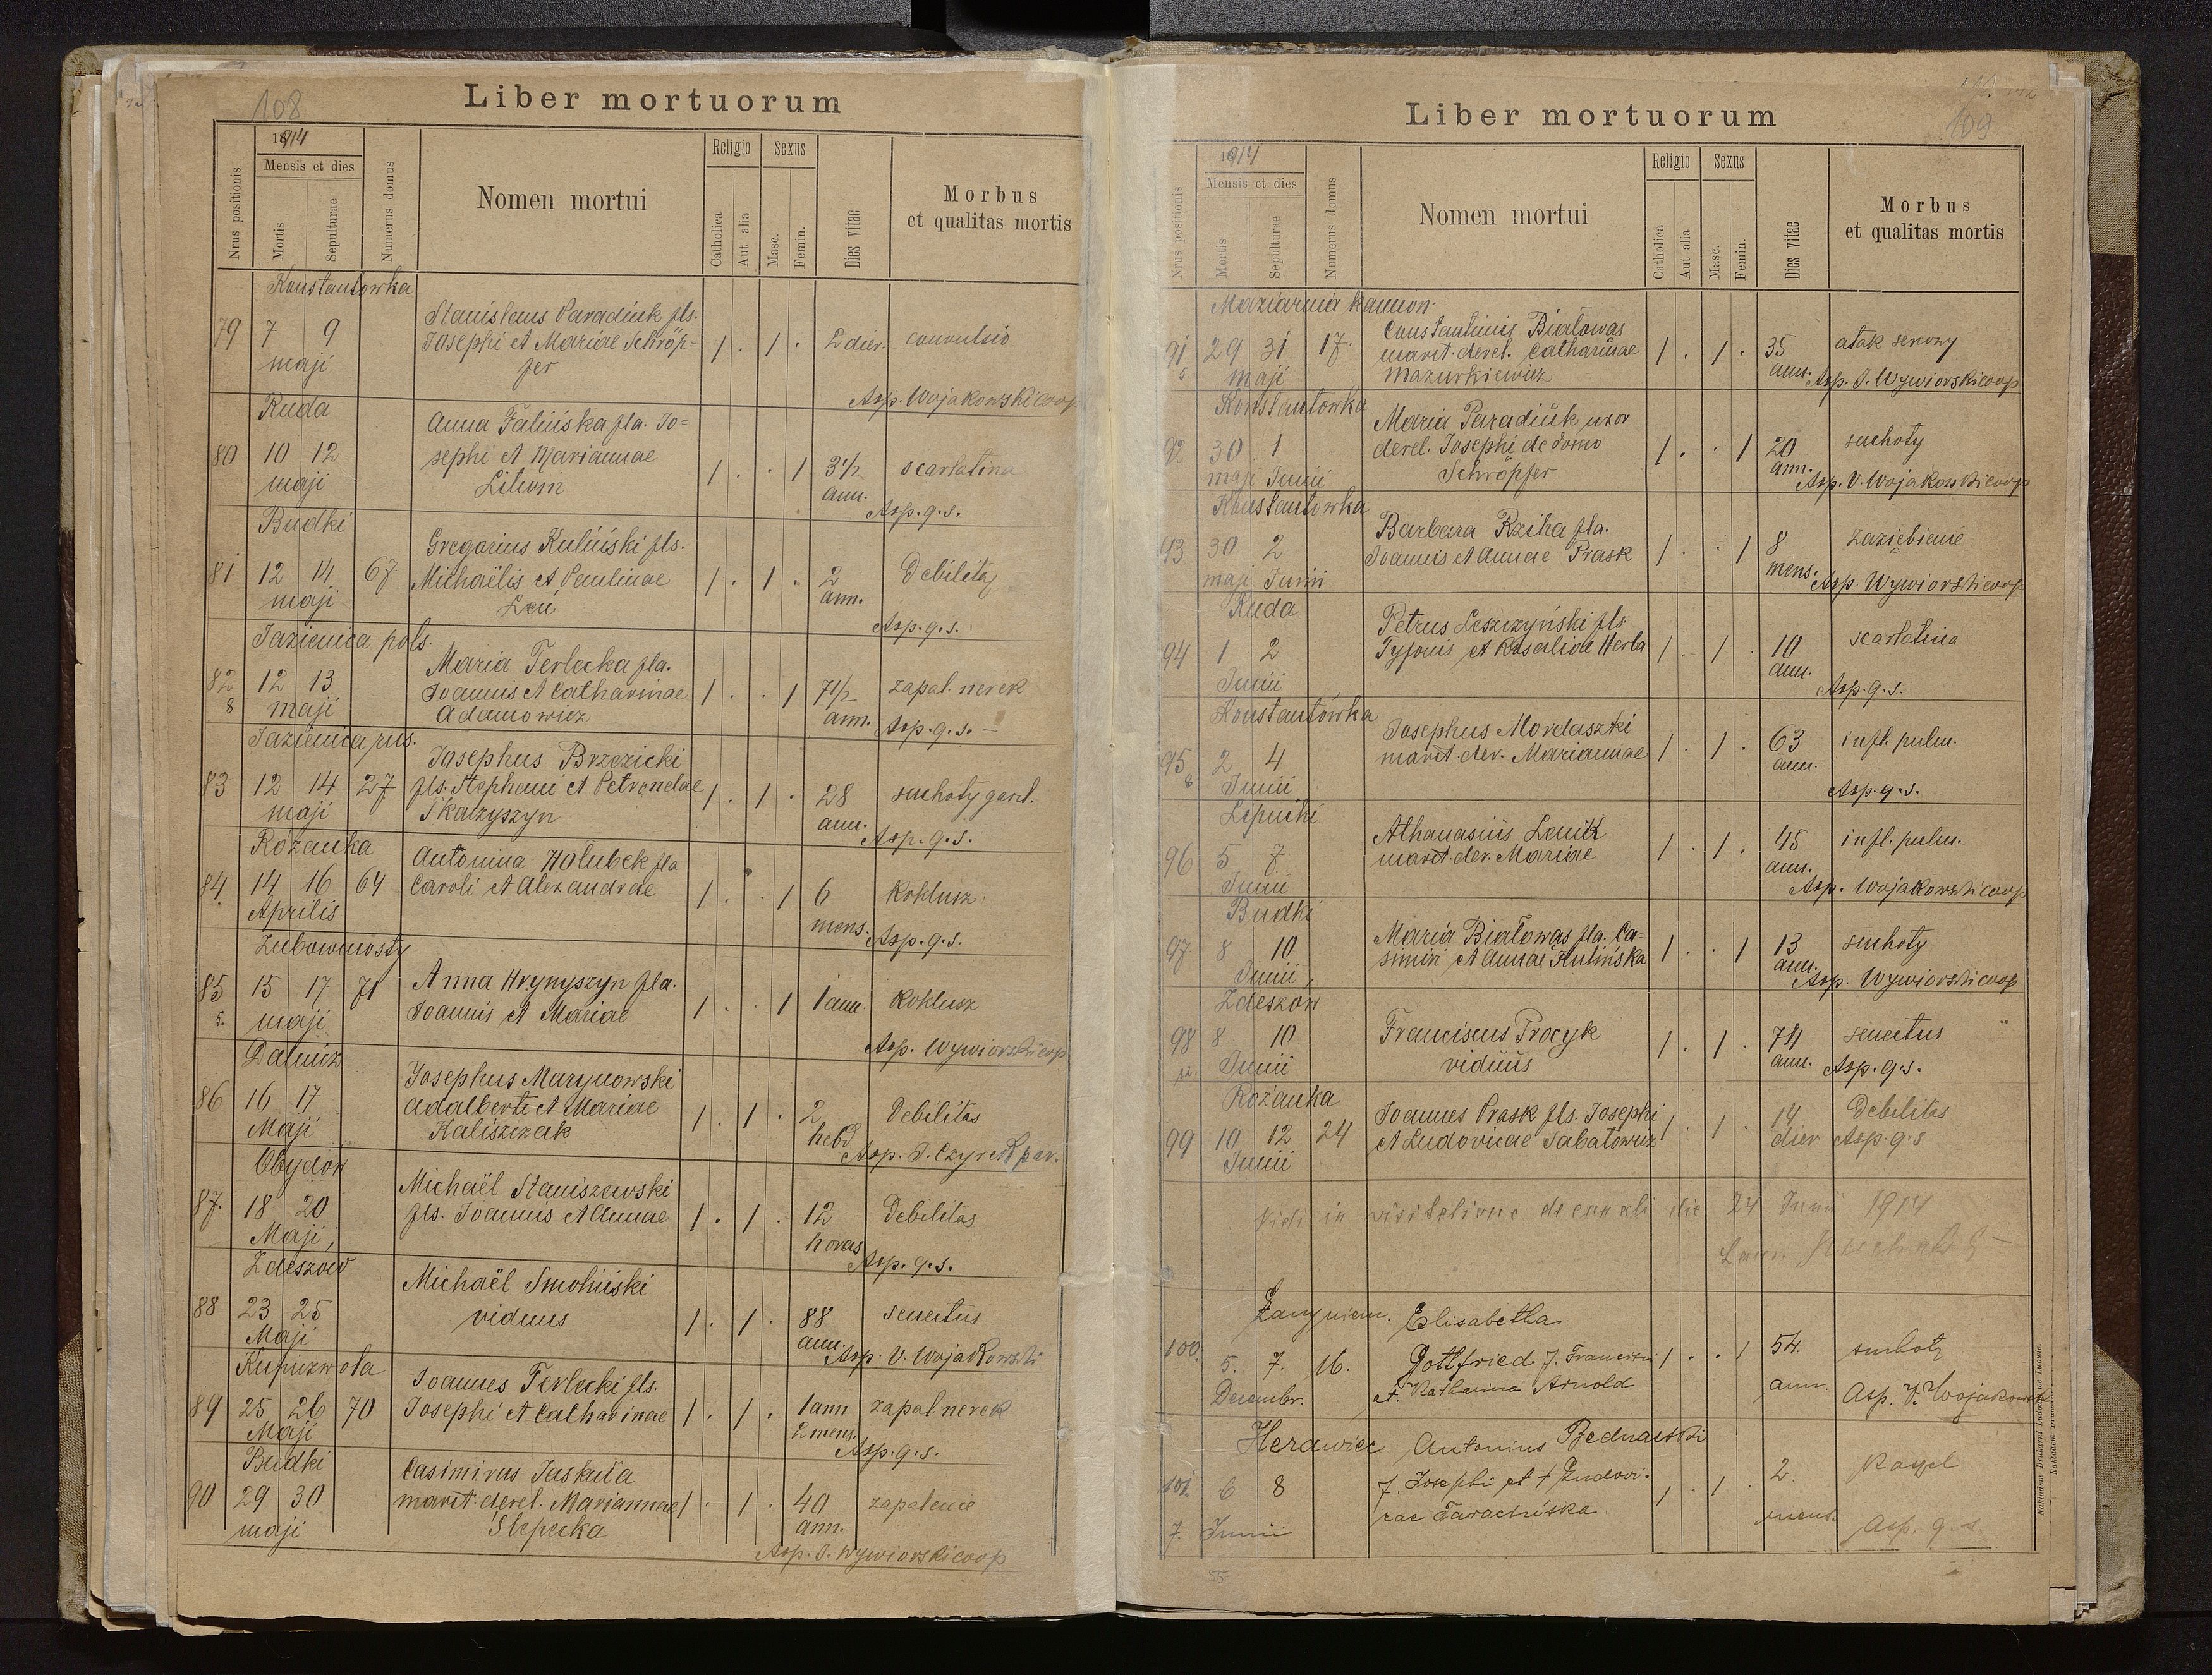 108
Liber mortuorum
1914
Nrus positionis
Mensis et dies
Mortis
Sepulturae
Numerus domus
Nomen mortui
Religio
Catholica
Aut alia
Sexus
Masc.
Femin.
Dies vitae
Morbus
et qualitas mortis
Konstantowka
Stanislaus Paradiuk fls.
79 7 9 Josephi et Mariae Schröp= 1 . 1 . 2 dier. convulsio
maji fer
Asp. Wojakowski coop
Ruda
Anna Falińska fla. Jo=
80 10 12 sephi et Mariannae 1 . . 1 3½ scarlatina
maji ann.
Asp. q. s.
Budki
Gregorius Kuliński fls.
81 12 14 67 Michaëlis et Paulinae 1 . 1 . 2 Debilitas
maji Leń ann.
Asp. q. s.
Jazienica pols.
Maria Terlecka fla.
82 12 13 Joannis et Catharinae 1 . . 1 7½ zapal. nerek
8 maji Adamowicz ann. Asp. q. s.
Jazienica rus.
Josephus Brzezicki
83 12 14 27 fls. Stephani et Petronelae 1 . 1 . 28 suchoty gard.
maji Tkaczyszyn ann.
Asp. q. s.
Rożanka
Antonina Hołubek fla
84 14 16 64 Caroli et Alexandrae 1 . . 1 6 Koklusz
Aprilis mens. Asp. q. s.
Zubowmosty
Anna Hrynyszyn fla.
85 15 17 71 Joannis et Mariae 1 . . 1 1 ann. Koklusz
5. maji
Asp. Wywiorski coop
Dalnicz
Josephus Marynowski
86 16 17 Adalberti et Mariae 1 . 1 . 2 Debilitas
Maji Kaliszczak hebd
Asp. J. Czyrek par.
Obydow
Michaël Staniszewski
87. 18 20 fls. Joannis et Annae 1 . 1 . 12 Debilitas
Maji horas
Asp. q. s.
Zdeszow
Michaël Smoliński
88 23 25 viduus 1 . 1 . 88 senectus
Maji ann.
Asp. V. Wojakowski
Kupiczwola
Joannes Terlecki fls.
89 25 26 70 Josephi et Catharinae 1 . 1 . 1 ann zapal. nerek
Maji 2 mens.
Asp. q. s.
Budki
Casimirus Jaskuła
90 29 30 marit. derel. Mariannae 1 . 1 . 40 zapalenie
maji ann.
Asp. J. Wywiorski coop
109
Liber mortuorum
1914
Nrus positionis
Mensis et dies
Mortis
Sepulturae
Numerus domus
Nomen mortui
Religio
Catholica
Aut alia
Sexus
Masc.
Femin.
Dies vitae
Morbus
et qualitas mortis
Maziarnia Kamion.
Constantinus Białowas
91 29 31 17. marit. derel. Catharinae 1 . 1 . 35 atak sercowy
5. maji Mazurkiewicz ann. Asp. J. Wywiorski coop
Konstantowka
Maria Paradiuk uxor
92 30 1 derel. Josephi de domo 1 . . 1 20 suchoty
maji Junii Schröpfer ann.
Asp. V. Wojakowski coop
Konstantowka
Barbara Rziha fla.
93 30 2 Joannis et Annae Prask 1 . . 1 8 zaziębienie
maji Junii mens. Asp. Wywiorski coop
Ruda
Petrus Leszczyński fls.
94 1 2 1 . 1 . 10 scarlatina
Junii ann.
Asp. q. s.
Konstantówka
Josephus Mordaszki
95 2 4 marit. der. Mariannae 1 . 1 . 63 infl. pulm.
8 Junii ann.
Asp. q. s.
Lipniki
Athanasius Lenik
96 5 7 marit. der. Mariae 1 . 1 . 45 infl. pulm.
Junii ann.
Asp. Wojakowski coop
Budki
Maria Białowas fla. Ca=
97 8 10 simiri et Annae Kulińska 1 . . 1 13 suchoty
Junii ann.
Asp. Wywiorski coop
Zdeszow
Franciscus Procyk
98 8 10 viduus 1 . 1 . 74 senectus
12. Junii ann. Asp. q. s.
Rożanka
Joannes Prask fls. Josephi
99 10 12 24 et Ludovicae Sabatowicz 1 . 1 . 14 Debilitas
Junii dier Asp. q. s
Vidi in visitatione decanali die 24 Junii 1914
Elisabetha
100. 5. 7. 16. Gottfried f. Francisci 1 . . 1 54. suchoty
Decembr. et Katharina Arnold ann. Asp. V. Wojakowski
Herawiec Antonius Bednarski
101. 6 8 f. Josephi et † Ludovi. 1 . 1 . 2. kaszel
7. Junii cae Taracińska mens.
Asp. q. s
55